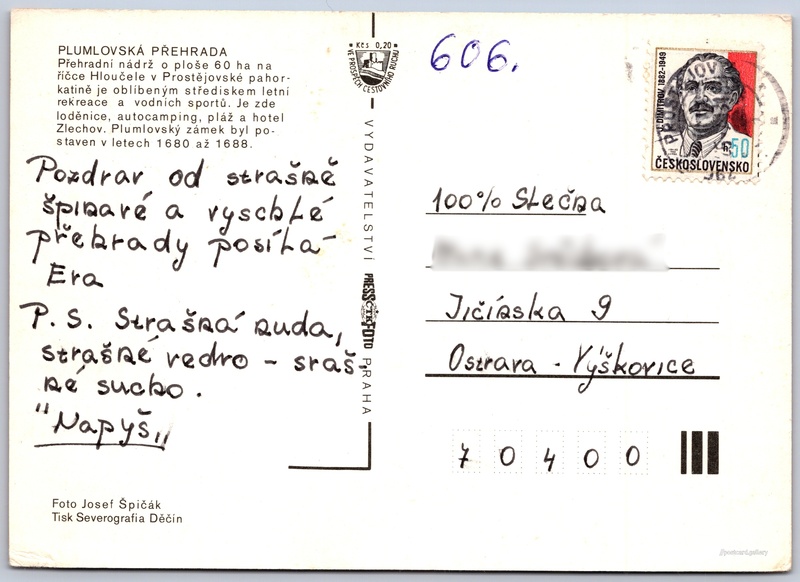 PLUMLOVSKÁ PŘEHRADA
Přehradní nádrž o ploše 60 ha na
říčce Hloučele v Prostějovské pahor-
katině je oblíbeným střediskem letní
rekreace a vodních sportů. Je zde
loděnice, autocamping, pláž a hotel
Zlechov. Plumlovský zámek byl po-
staven v letech 1680 až 1688.
Pozdrav od strašně
špinavé a vyschlé
přehrady posílá
Eva
P. S. Strašná nuda,
strašné vedro - straš-
né sucho.
"Napyš"
Foto Josef Špičák
Tisk Severografia Děčín
Kčs 0,20
VE PROSPĚCH CESTOVNÍHO RUCHU
VYDAVATELSTVÍ PRESSFOTO PRAHA
ČTK
606.
G. DIMITROV 1882-1949
50
ČESKOSLOVENSKO
100% Slečna
Jičínska 9
Ostrava - Výškovice
70400
postcard.gallery